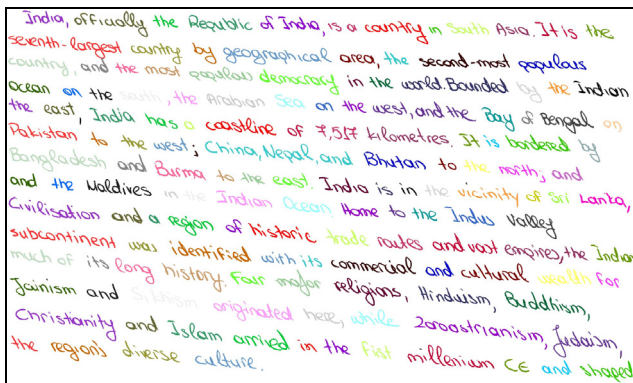 India, officially the Republic of India, is a country in South Asia. It is the
seventh-largest country by geographical area, the second-most populous
country, and the most populous democracy in the world. Bounded by the Indian
Ocean on the south, the Arabian Sea on the west, and the Bay of Bengal on
the east, India has a coastline of 7,517 kilometres. It is bordered by
Pakistan to the west; China, Nepal, and Bhutan to the north; and
Bangladesh and Burma to the east. India is in the vicinity of Sri Lanka,
and the Maldives in the Indian Ocean. Home to the Indus Valley
Civilisation and a region of historic trade routes and vast empires, the Indian
subcontinent was identified with its commercial and cultural wealth for
much of its long history. Four major religions, Hinduism, Buddhism,
Jainism and Sikhism originated here, while Zoroastrianism, Judaism,
Christianity and Islam arrived in the first millenium CE and shaped
the region's diverse culture.